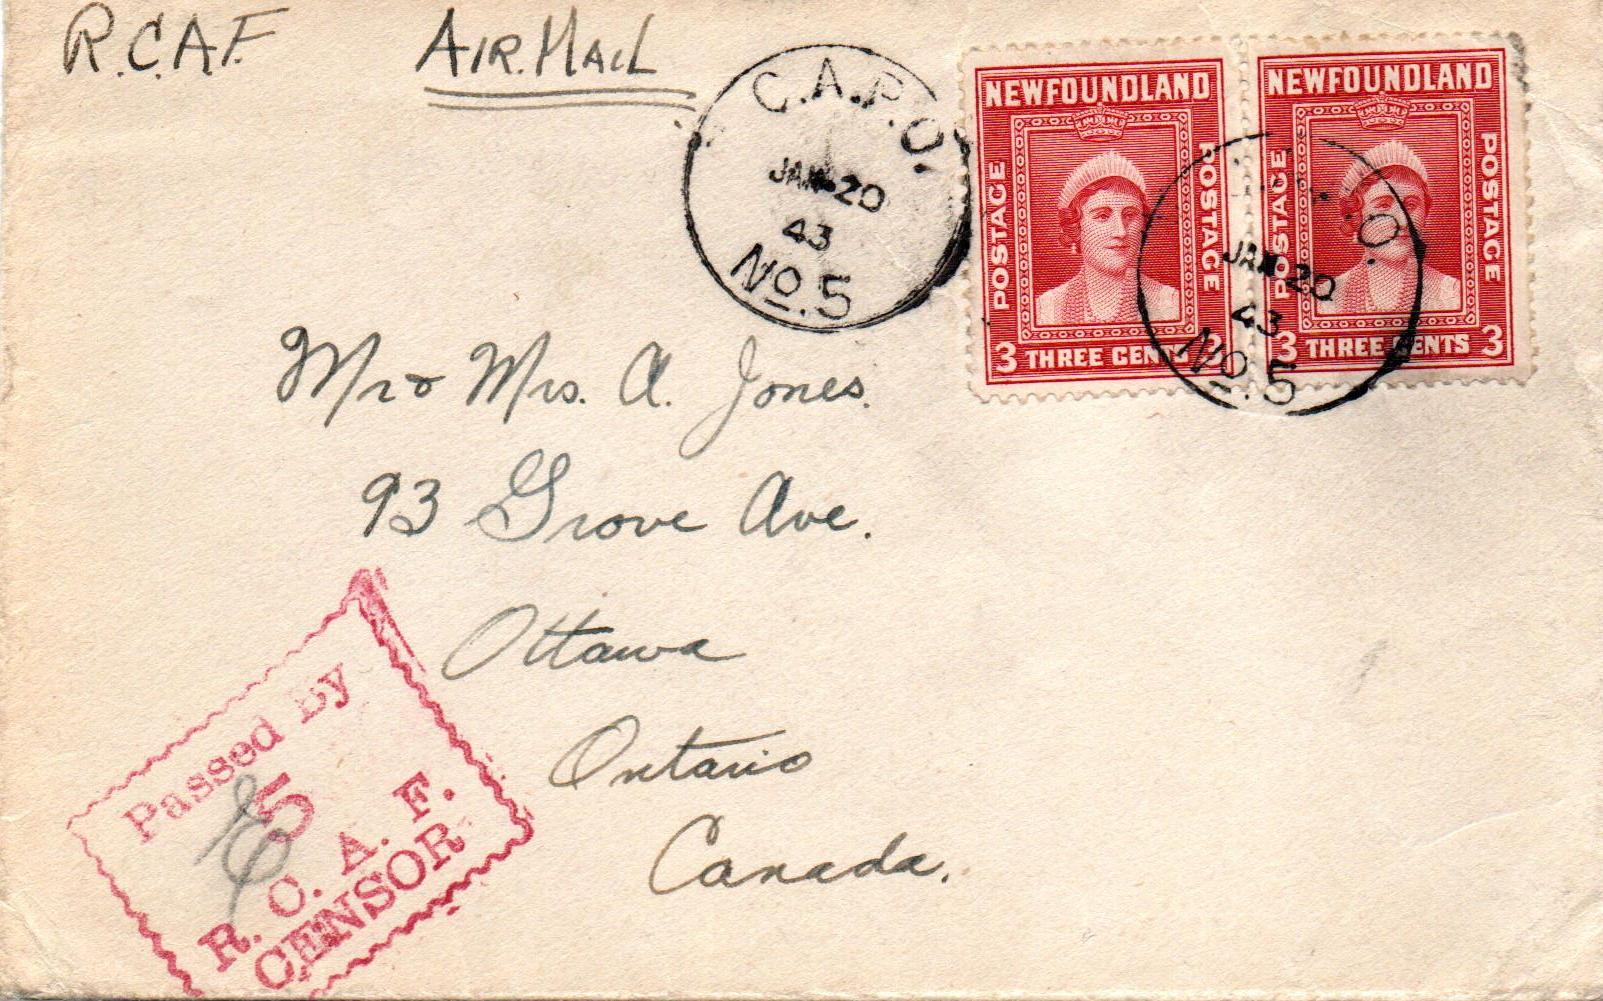 R.C.A.F. AIR.MAIL
C.A.P.O.
JAN 20
43
No. 5
NEWFOUNDLAND
POSTAGE POSTAGE
3 THREE CENTS
NEWFOUNDLAND
POSTAGE POSTAGE
3 THREE CENTS 3
O.
JAN 20
43
No. 5
Mr & Mrs. A. Jones.
93 Grove Ave.
Ottawa
Ontario
Canada.
Passed By
5
R. C. A. F.
CENSOR